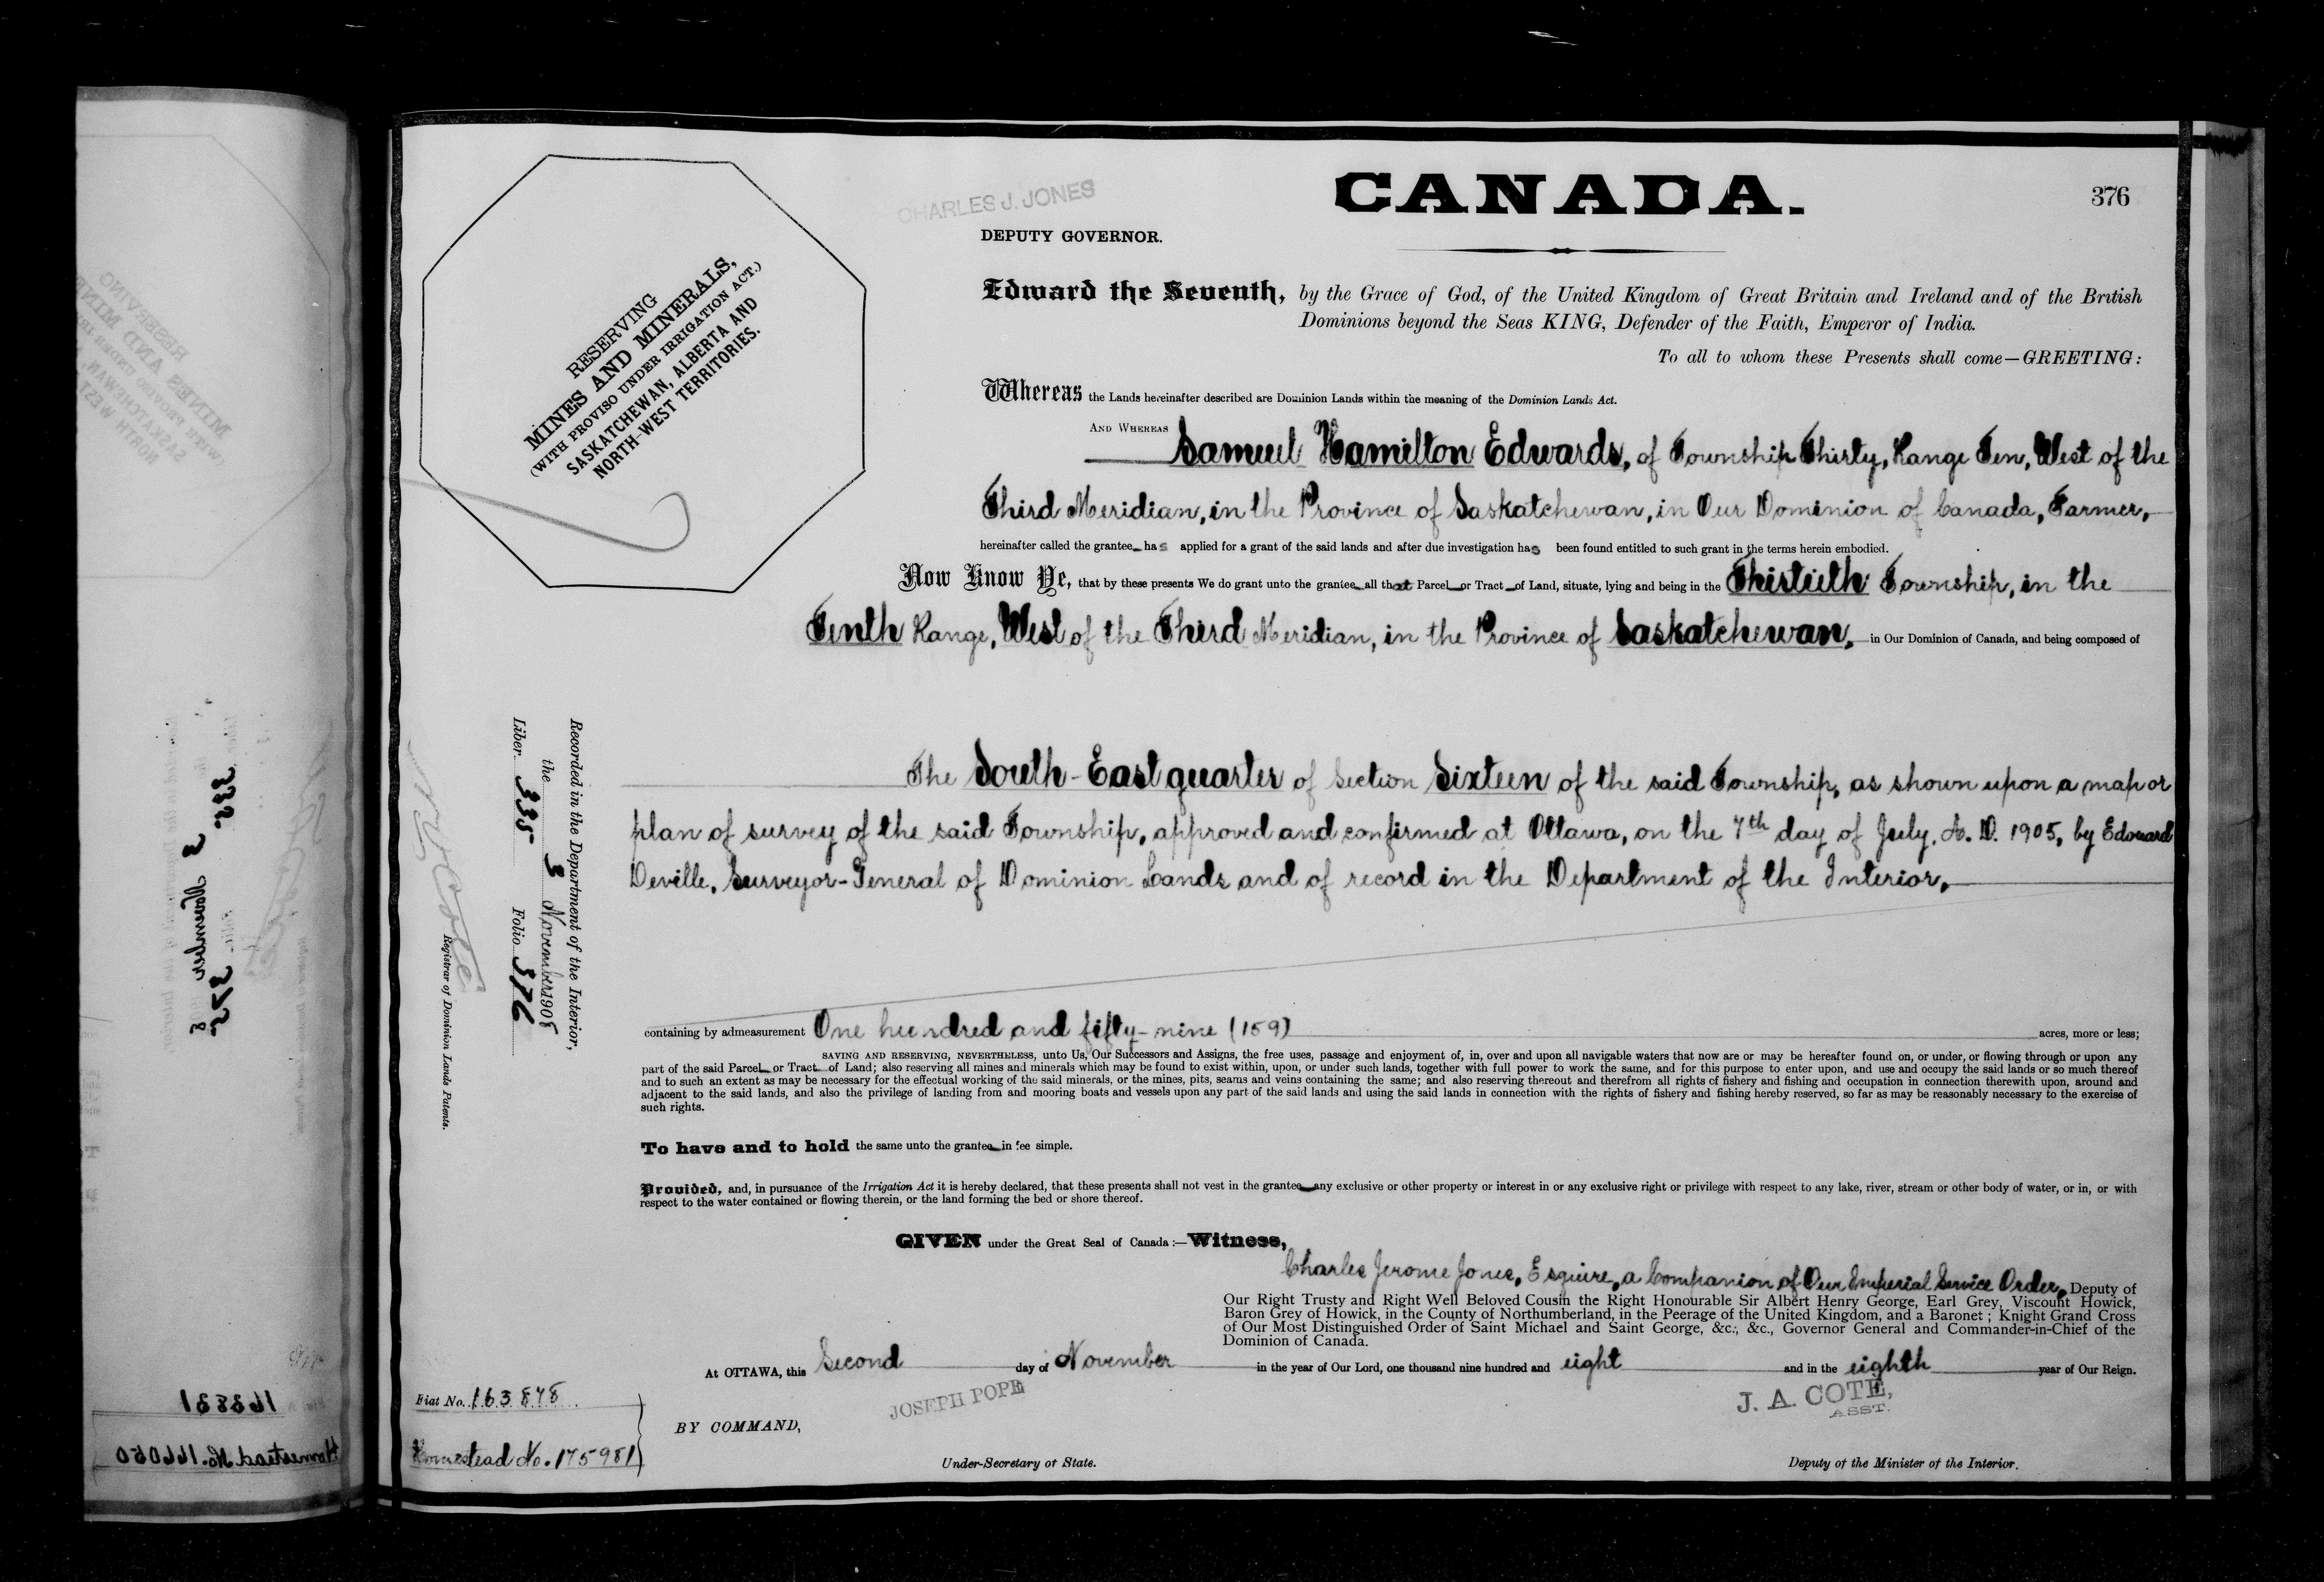 CANADA.
376
CHARLES J. JONES
DEPUTY GOVERNOR.
RESERVING
MINES AND MINERALS,
(WITH PROVISO UNDER IRRIGATION ACT.)
SASKATCHEWAN, ALBERTA AND
NORTH-WEST TERRITORIES.
Edward the Seventh, by the Grace of God, of the United Kingdom of Great Britain and Ireland and of the British
Dominions beyond the Seas KING, Defender of the Faith, Emperor of India.
To all to whom these Presents shall come—GREETING:
Whereas the Lands hereinafter described are Dominion Lands within the meaning of the Dominion Lands Act.
AND WHEREAS Samuel Hamilton Edwards, of Township Thirty, Range Ten, West of the
Third Meridian, in the Province of Saskatchewan, in Our Dominion of Canada, Farmer,
hereinafter called the grantee has applied for a grant of the said lands and after due investigation has been found entitled to such grant in the terms herein embodied.
Now Know Ye, that by these presents We do grant unto the grantee all that Parcel or Tract of Land, situate, lying and being in the Thirtieth Township, in the
Tenth Range, West of the Third Meridian, in the Province of Saskatchewan, in Our Dominion of Canada, and being composed of
The South-East quarter of Section Sixteen of the said Township, as shown upon a map or
plan of survey of the said Township, approved and confirmed at Ottawa, on the 7th day of July, A. D. 1905, by Edouard
Deville, Surveyor-General of Dominion Lands and of record in the Department of the Interior,
Recorded in the Department of the Interior,
the 3 November 1908
Liber 335 Folio 376
Registrar of Dominion Lands Patents.
containing by admeasurement One hundred and fifty-nine (159) acres, more or less;
SAVING AND RESERVING, NEVERTHELESS, unto Us, Our Successors and Assigns, the free uses, passage and enjoyment of, in, over and upon all navigable waters that now are or may be hereafter found on, or under, or flowing through or upon any
part of the said Parcel or Tract of Land; also reserving all mines and minerals which may be found to exist within, upon, or under such lands, together with full power to work the same, and for this purpose to enter upon, and use and occupy the said lands or so much thereof
and to such an extent as may be necessary for the effectual working of the said minerals, or the mines, pits, seams and veins containing the same; and also reserving thereout and therefrom all rights of fishery and fishing and occupation in connection therewith upon, around and
adjacent to the said lands, and also the privilege of landing from and mooring boats and vessels upon any part of the said lands and using the said lands in connection with the rights of fishery and fishing hereby reserved, so far as may be reasonably necessary to the exercise of
such rights.
To have and to hold the same unto the grantee in fee simple.
Provided, and, in pursuance of the Irrigation Act it is hereby declared, that these presents shall not vest in the grantee any exclusive or other property or interest in or any exclusive right or privilege with respect to any lake, river, stream or other body of water, or in, or with
respect to the water contained or flowing therein, or the land forming the bed or shore thereof.
GIVEN under the Great Seal of Canada:—Witness,
Charles Jerome Jones, Esquire, a Companion of Our Imperial Service Order, Deputy of
Our Right Trusty and Right Well Beloved Cousin the Right Honourable Sir Albert Henry George, Earl Grey, Viscount Howick,
Baron Grey of Howick, in the County of Northumberland, in the Peerage of the United Kingdom, and a Baronet; Knight Grand Cross
of Our Most Distinguished Order of Saint Michael and Saint George, &c., &c., Governor General and Commander-in-Chief of the
Dominion of Canada.
At OTTAWA, this Second day of November in the year of Our Lord, one thousand nine hundred and eight and in the eighth year of Our Reign.
JOSEPH POPE
J. A. COTE,
ASST.
Fiat No. 163848
BY COMMAND,
Homestead No. 175981
Under-Secretary of State.
Deputy of the Minister of the Interior.
335
3 November
375
163831
Homestead No. 166050